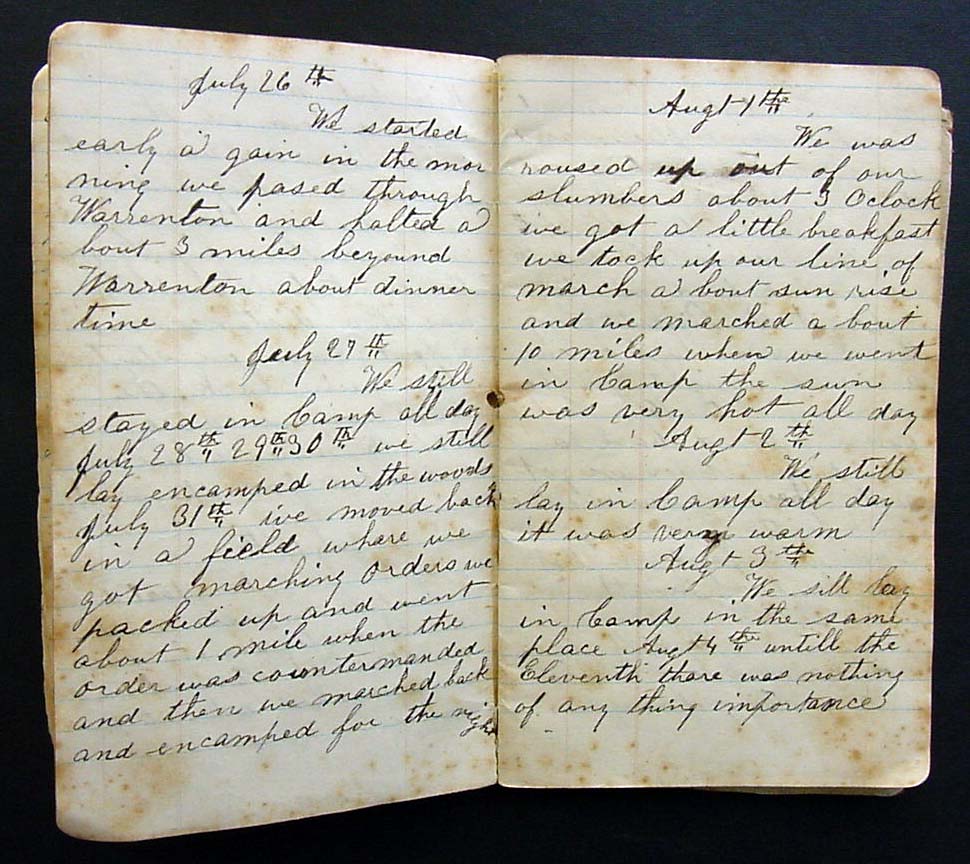 July 26th
We started
early a gain in the mor
ning we pased through
Warrenton and halted a
bout 3 miles beyound
Warrenton about dinner
time
July 27th
We still
stayed in Camp all day
July 28th 29th 30th we still
lay encamped in the woods
July 31th we moved back
in a field where we
got marching orders we
packed up and went
about 1 mile when the
order was countermanded
and then we marched back
and encamped for the night
Augt 1the
We was
roused up out of our
slumbers about 3 Oclock
we got a little breakfast
we tock up our line of
march a bout sun rise
and we marched a bout
10 miles when we went
in Camp the sun
was very hot all day
Augt 2th
We still
lay in Camp all day
it was very warm
Augt 3the
We sill lay
in Camp in the same
place Augt 4the untill the
Eleventh thare was nothing
of any thing importance